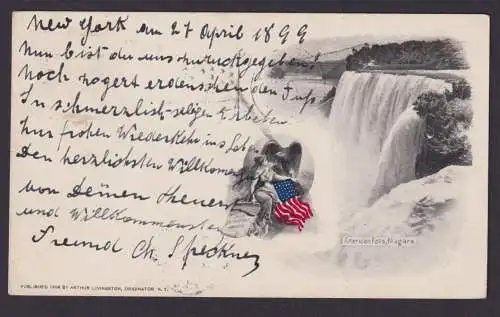 New York am 27 April 1899
Nun bist du uns zurückgegeben!
Noch zögert erdenschen den Fuss
In schmerzlich-seligen Erbeben.
Zur frohen Wiederkehr ins Leb.
Den herzlichsten Willkomm
von Deinem
und Willkommensten
Freund Ch. Speckner
American Falls, Niagara.
PUBLISHED 1898 BY ARTHUR LIVINGSTON, ORIGINATOR N.Y.